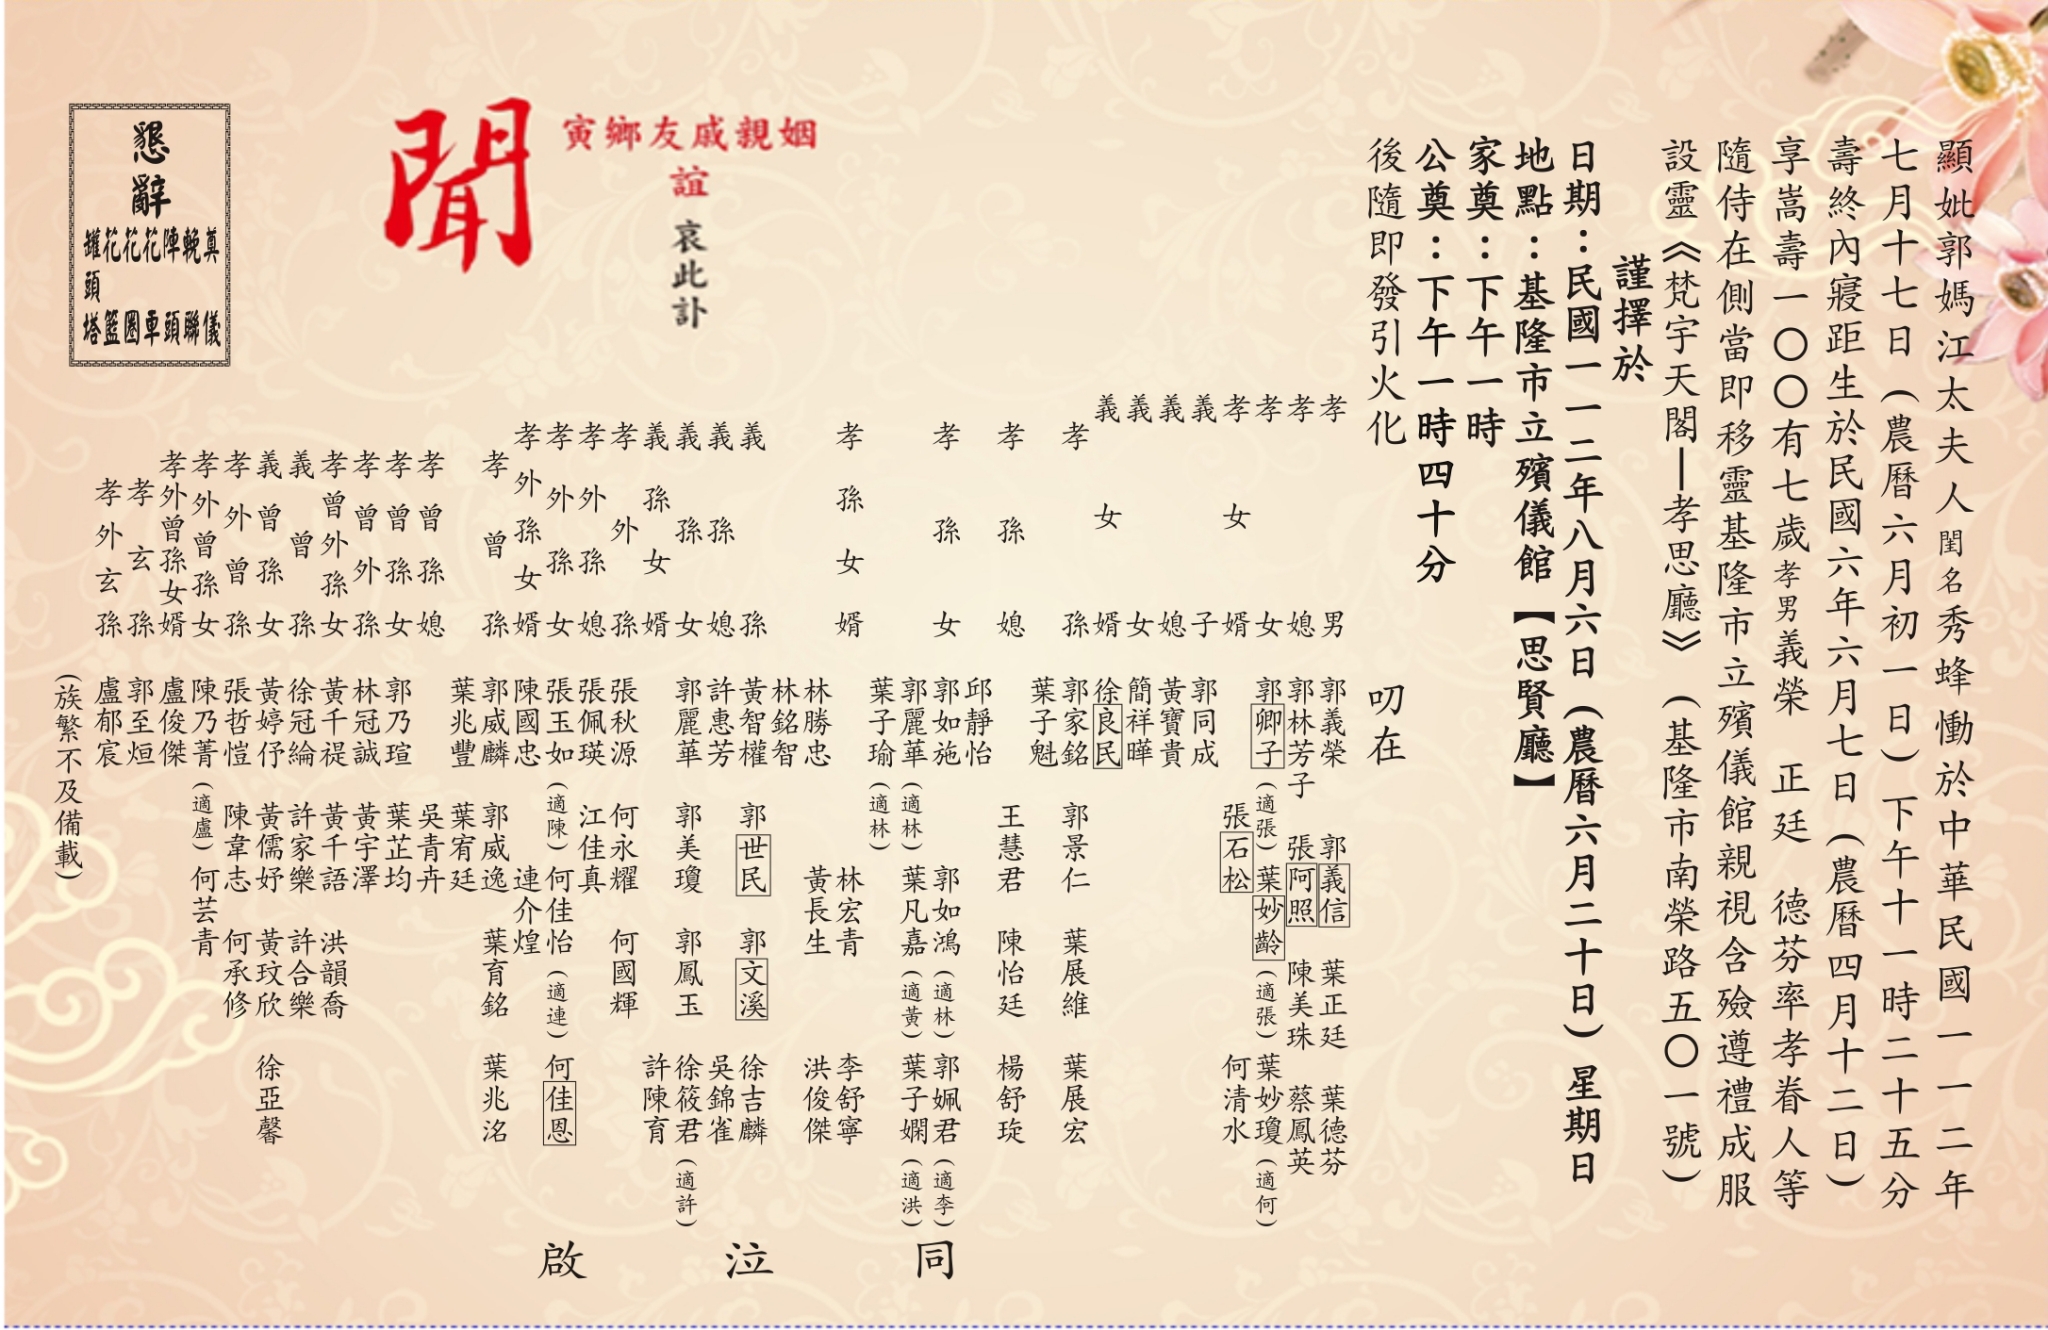 顯妣郭媽江太夫人閨名秀蜂慟於中華民國一一二年
七月十七日（農曆六月初一日）下午十一時二十五分
壽終內寢距生於民國六年六月七日（農曆四月十二日）
享嵩壽一〇〇有七歲孝男義榮　正廷　德芬率孝眷人等
隨侍在側當即移靈基隆市立殯儀館親視含殮遵禮成服
設靈《梵宇天閣—孝思廳》（基隆市南榮路五〇一號）
謹擇於
日期：民國一一二年八月六日（農曆六月二十日）星期日
地點：基隆市立殯儀館【思賢廳】
家奠：下午一時
公奠：下午一時四十分
後隨即發引火化
叨在
姻親戚友鄉寅
誼
哀此訃
聞
孝男 郭義榮 郭義信 葉正廷 葉德芬
孝媳 郭林芳子 張阿照 陳美珠 蔡鳳英
孝女 郭卿子（適張） 葉妙齡（適張） 葉妙瓊（適何）
孝女婿 張石松 何清水
義子 郭同成
義媳 黃寶貴
義女 簡祥曄
義女婿 徐良民
孝孫 郭家銘 郭景仁 葉展維 葉展宏
葉子魁
孝孫媳 王慧君 陳怡廷 楊舒琁
邱靜怡
孝孫女 郭如施 郭如鴻（適林） 郭姵君（適李）
郭麗華（適林） 葉凡嘉（適黃） 葉子嫻（適洪）
葉子瑜（適林）
孝孫女婿 林宏青 李舒寧
林勝忠 黃長生 洪俊傑
林銘智
義孫 黃智權 郭世民 郭文溪 徐吉麟
義孫媳 許惠芳 吳錦雀
義孫女 郭麗華 郭美瓊 郭鳳玉 徐筱君（適許）
義孫女婿 許陳育
孝外孫 張秋源 何永耀 何國輝
孝外孫媳 張佩瑛 江佳真
孝外孫女 張玉如（適陳） 何佳怡（適連） 何佳恩
孝外孫女婿 陳國忠 連介煌
孝曾孫 郭威麟 郭威逸 葉育銘 葉兆洺
葉兆豐 葉宥廷
孝曾孫媳 吳青卉
孝曾孫女 郭乃瑄 葉芷均
孝曾外孫 林冠誠 黃宇澤
孝曾外孫女 黃千禔 黃千語 洪韻喬
義曾孫 徐冠綸 許家樂 許合樂
義曾孫女 黃婷伃 黃儒妤 黃玟欣 徐亞馨
孝外曾孫 張哲愷 陳韋志 何承修
孝外曾孫女 陳乃菁（適盧） 何芸青
孝外曾孫女婿 盧俊傑
孝玄孫 郭至烜
孝外玄孫 盧郁宸
（族繁不及備載）
同泣啟
懇辭
奠儀
輓聯
陣頭
花車
花圈
花籃
罐頭塔